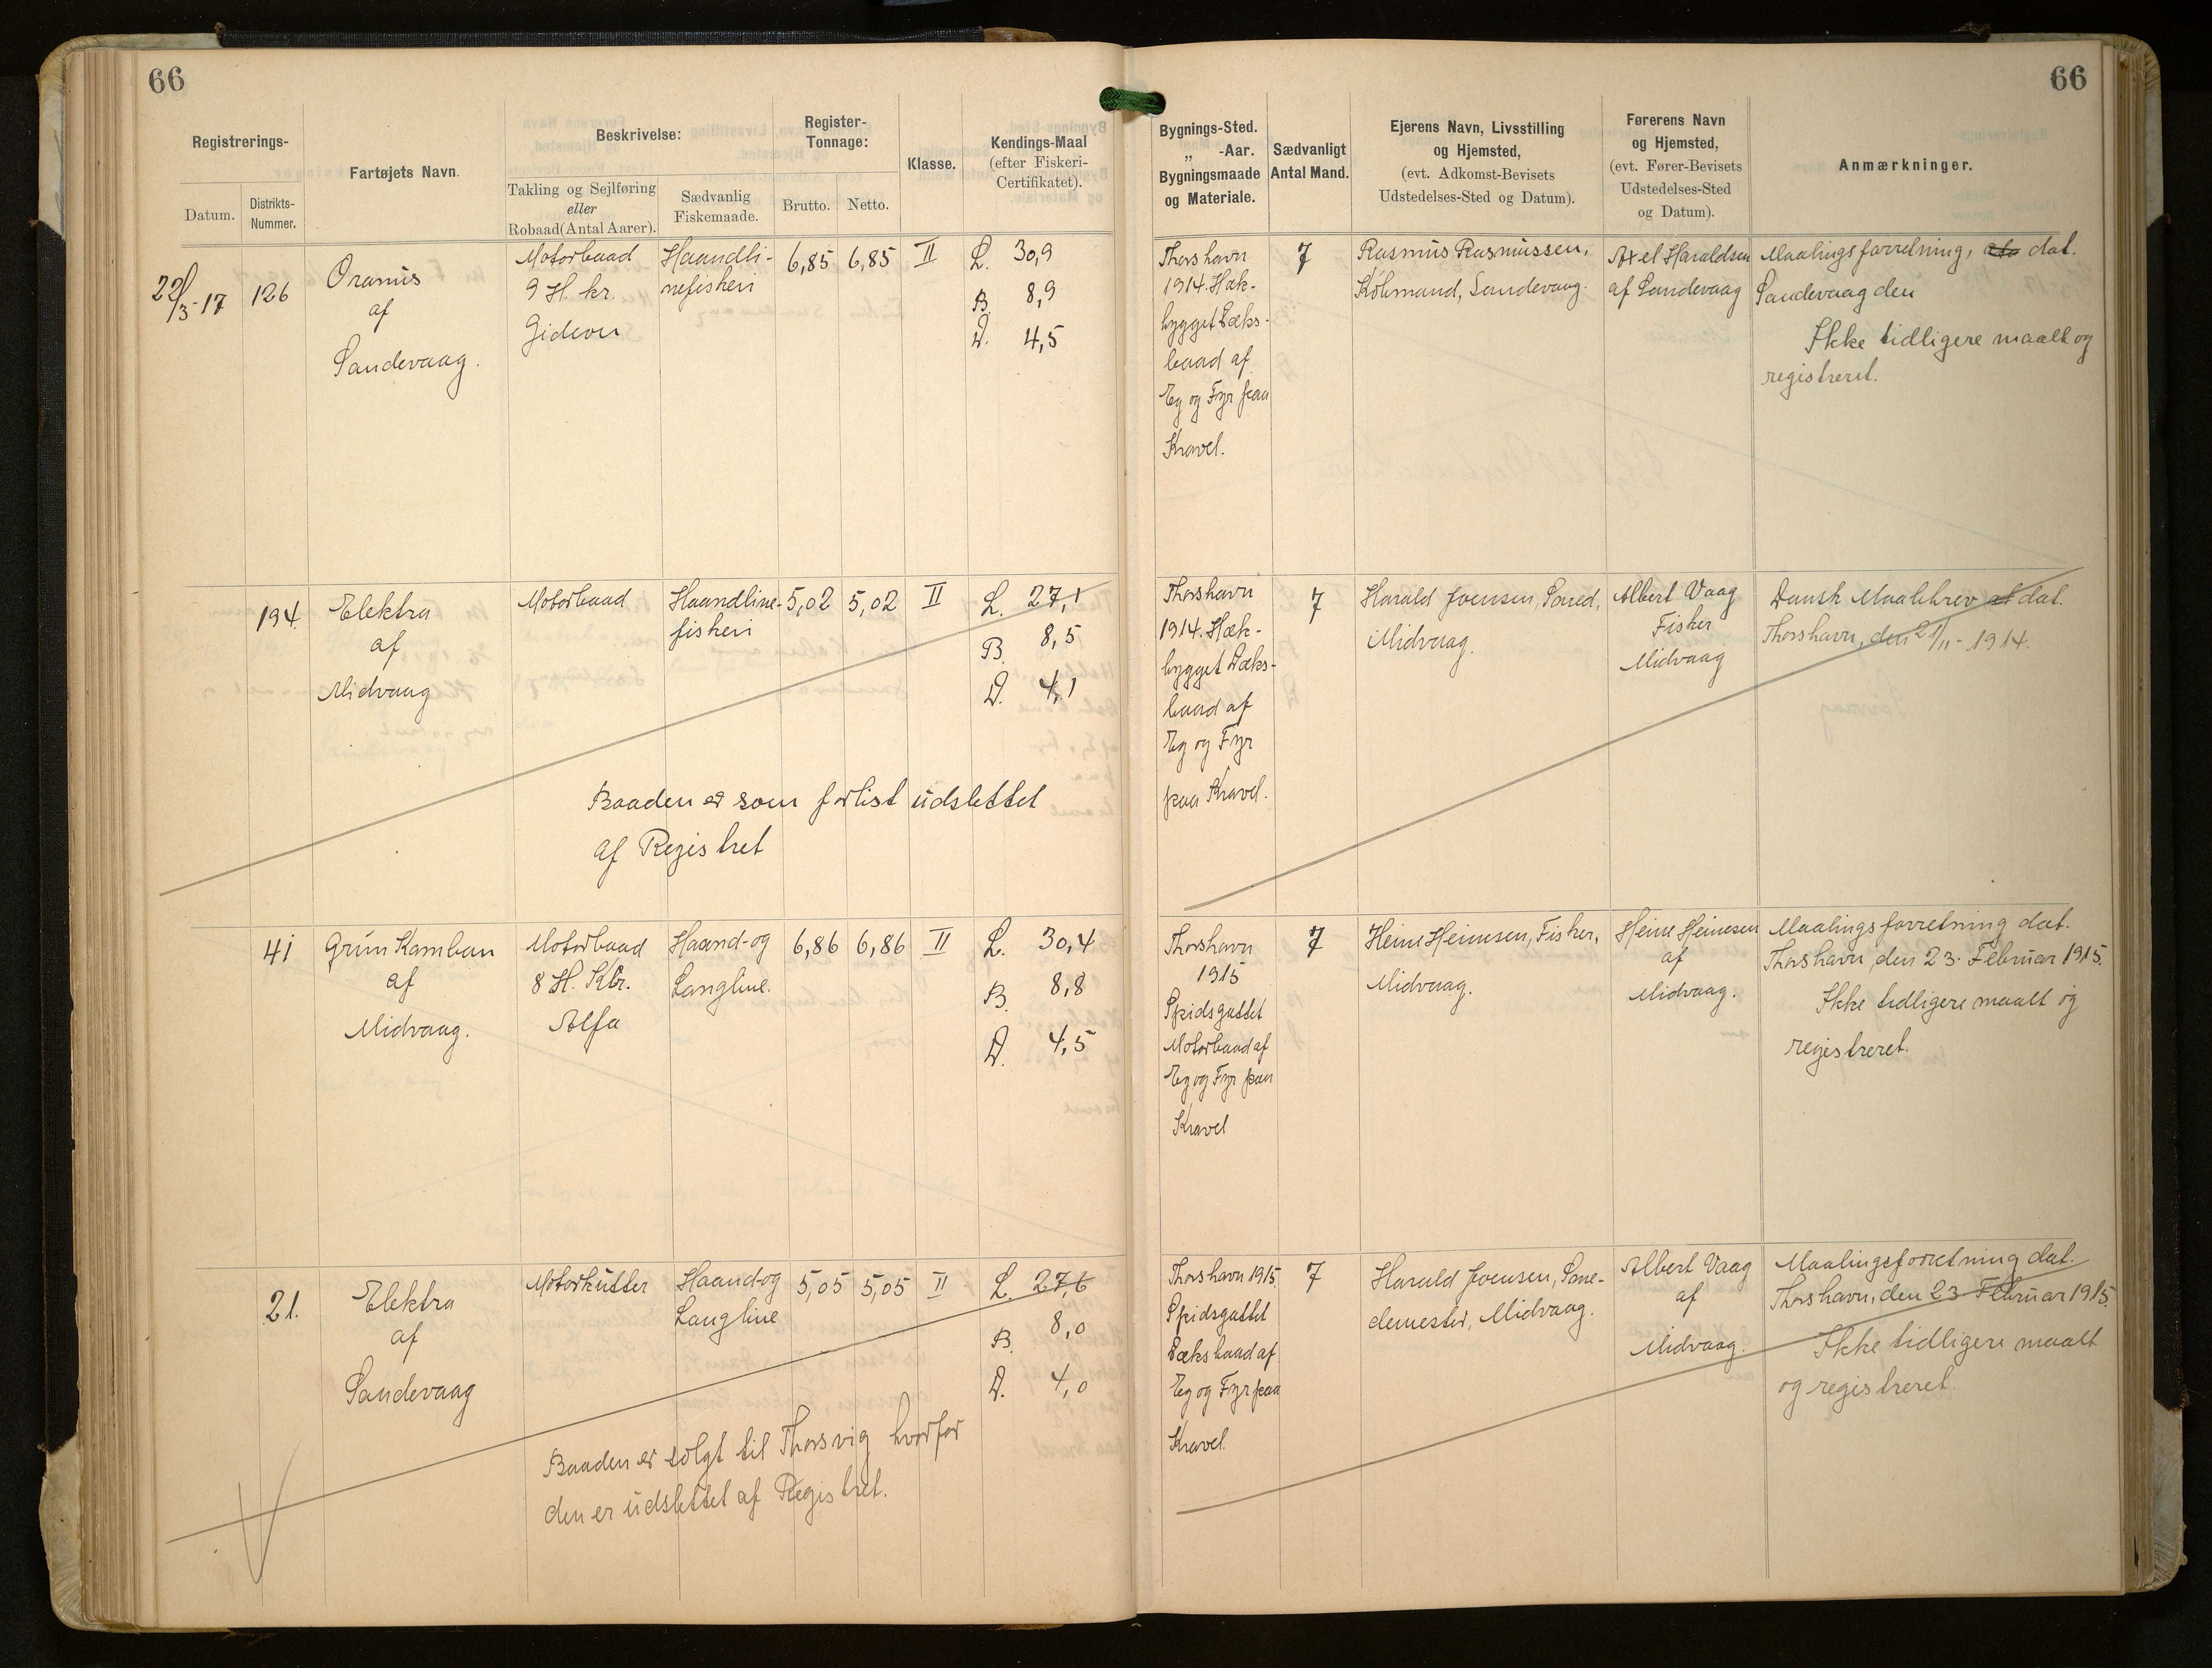 66
66
Registrerings-
Datum.
Distrikts-
Nummer.
Fartøjets Navn.
Beskrivelse:
Takling og Sejlføring
eller
Robaad(Antal Aarer).
Sædvanlig
Fiskemaade.
Register-
Tonnage:
Brutto.
Netto.
Klasse.
Kendings-Maal
(efter Fiskeri-
Certifikatet).
Bygnings-Sted.
„ -Aar.
Bygningsmaade
og Materiale.
Sædvanligt
Antal Mand.
Ejerens Navn, Livsstilling
og Hjemsted,
(evt. Adkomst-Bevisets
Udstedelses-Sted og Datum).
Førerens Navn
og Hjemsted,
(evt. Fører-Bevisets
Udstedelses-Sted
og Datum).
Anmærkninger.
22/3-17
126
Oranus
af
Sandevaag.
Motorbaad
9 H. kr.
Gideon
Haandli-
nefiskeri
6,85
6,85
II
L. 30,9
B. 8,9
D. 4,5
Thorshavn
1914. Hæk-
bygget Dæks-
baad af
Eg og Fyr paa
Kravel.
7
Rasmus Rasmussen,
Købmand, Sandevaag.
Axel Haraldsen
af Sandevaag
Maalingsforretning, dat.
Sandevaag den
Ikke tidligere maalt og
registreret.
194.
Elektra
af
Midvaag
Motorbaad
Haandline-
fiskeri
5,02
5,02
II
L. 27,1
B. 8,5
D. 4,1
Baaden er som forlist udslettet
af Registret
Thorshavn
1914. Hæk-
bygget Dæks-
baad af
Eg og Fyr
paa Kravel.
7
Harald Joensen,
Midvaag.
Albert Vaag
Fisker
Midvaag
Dansk Maalebrev dat.
Thorshavn, den 21/11 - 1914.
41
Grim Kamban
af
Midvaag.
Motorbaad
8 H. Kr.
Alfa
Haand-og
Langline.
6,86
6,86
II
L. 30,4
B. 8,8
D. 4,5
Thorshavn
1915
Spidsgattet
Motorbaad af
Eg og Fyr paa
Kravel
7
Heine Heinesen, Fisker,
Midvaag.
Heine Heinesen
af
Midvaag.
Maalingsforretning dat.
Thorshavn, den 23. Februar 1915.
Ikke tidligere maalt og
registreret.
21.
Elektra
af
Sandevaag
Motorkutter
Haand-og
Langline
5,05
5,05
II
L. 27,6
B. 8,0
D. 4,0
Baaden er solgt til Thorsvig hvorfor
den er udslettet af Registret.
Thorshavn 1915
Spidsgattet
Dæksbaad af
Eg og Fyr paa
Kravel.
7
Harald Joensen, Sane-
demester, Midvaag.
Albert Vaag
af
Midvaag.
Maalingsforretning dat.
Thorshavn, den 23. Februar 1915.
Ikke tidligere maalt
og registreret.